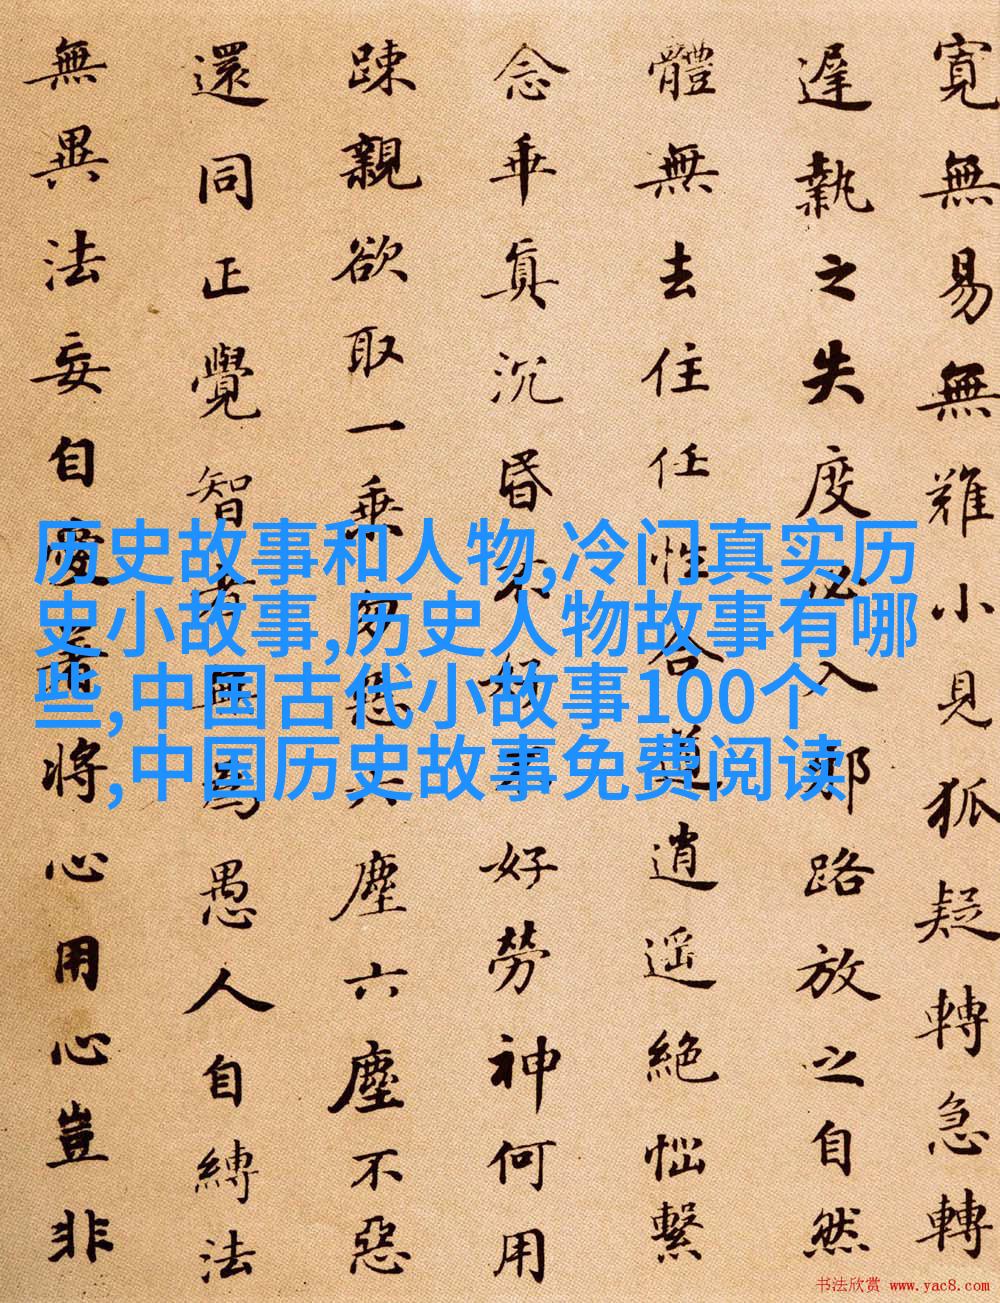 寬無易無難小見狐疑轉急轉
遲執之失度必入邪路放之自然
體無去住任性合道逍遙絕惱繫
念乖真沉昏不好不好勞神何用
踈親欲取一乘勿惡六塵六塵不惡
還同正覺智者無為愚人自縛法
無異法妄自愛着將心用心豈非
历史故事和人物,冷门真实历
史小故事,历史人物故事有哪
些,中国古代小故事100个
,中国历史故事免费阅读
书法欣赏 www.yac8.com